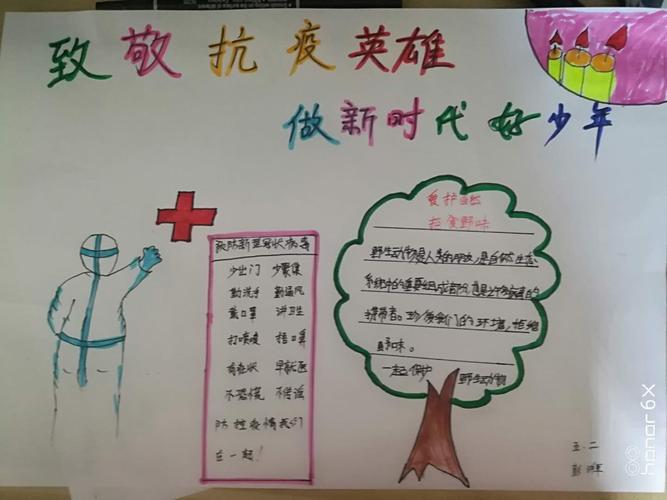 致敬抗疫英雄
做新时代好少年
预防新型冠状病毒
少出门 少聚集
勤洗手 勤通风
戴口罩 讲卫生
打喷嚏 捂口鼻
有症状 早就医
不恐慌 不传谣
防控疫情我们
在一起！
爱护自然
拒食野味
野生动物是人类的朋友，是自然生态
系统中的重要组成部分，也是许多病毒的
携带者。珍爱我们的环境，拒绝
野味。
一起保护 野生动物
五.二
honor 6x